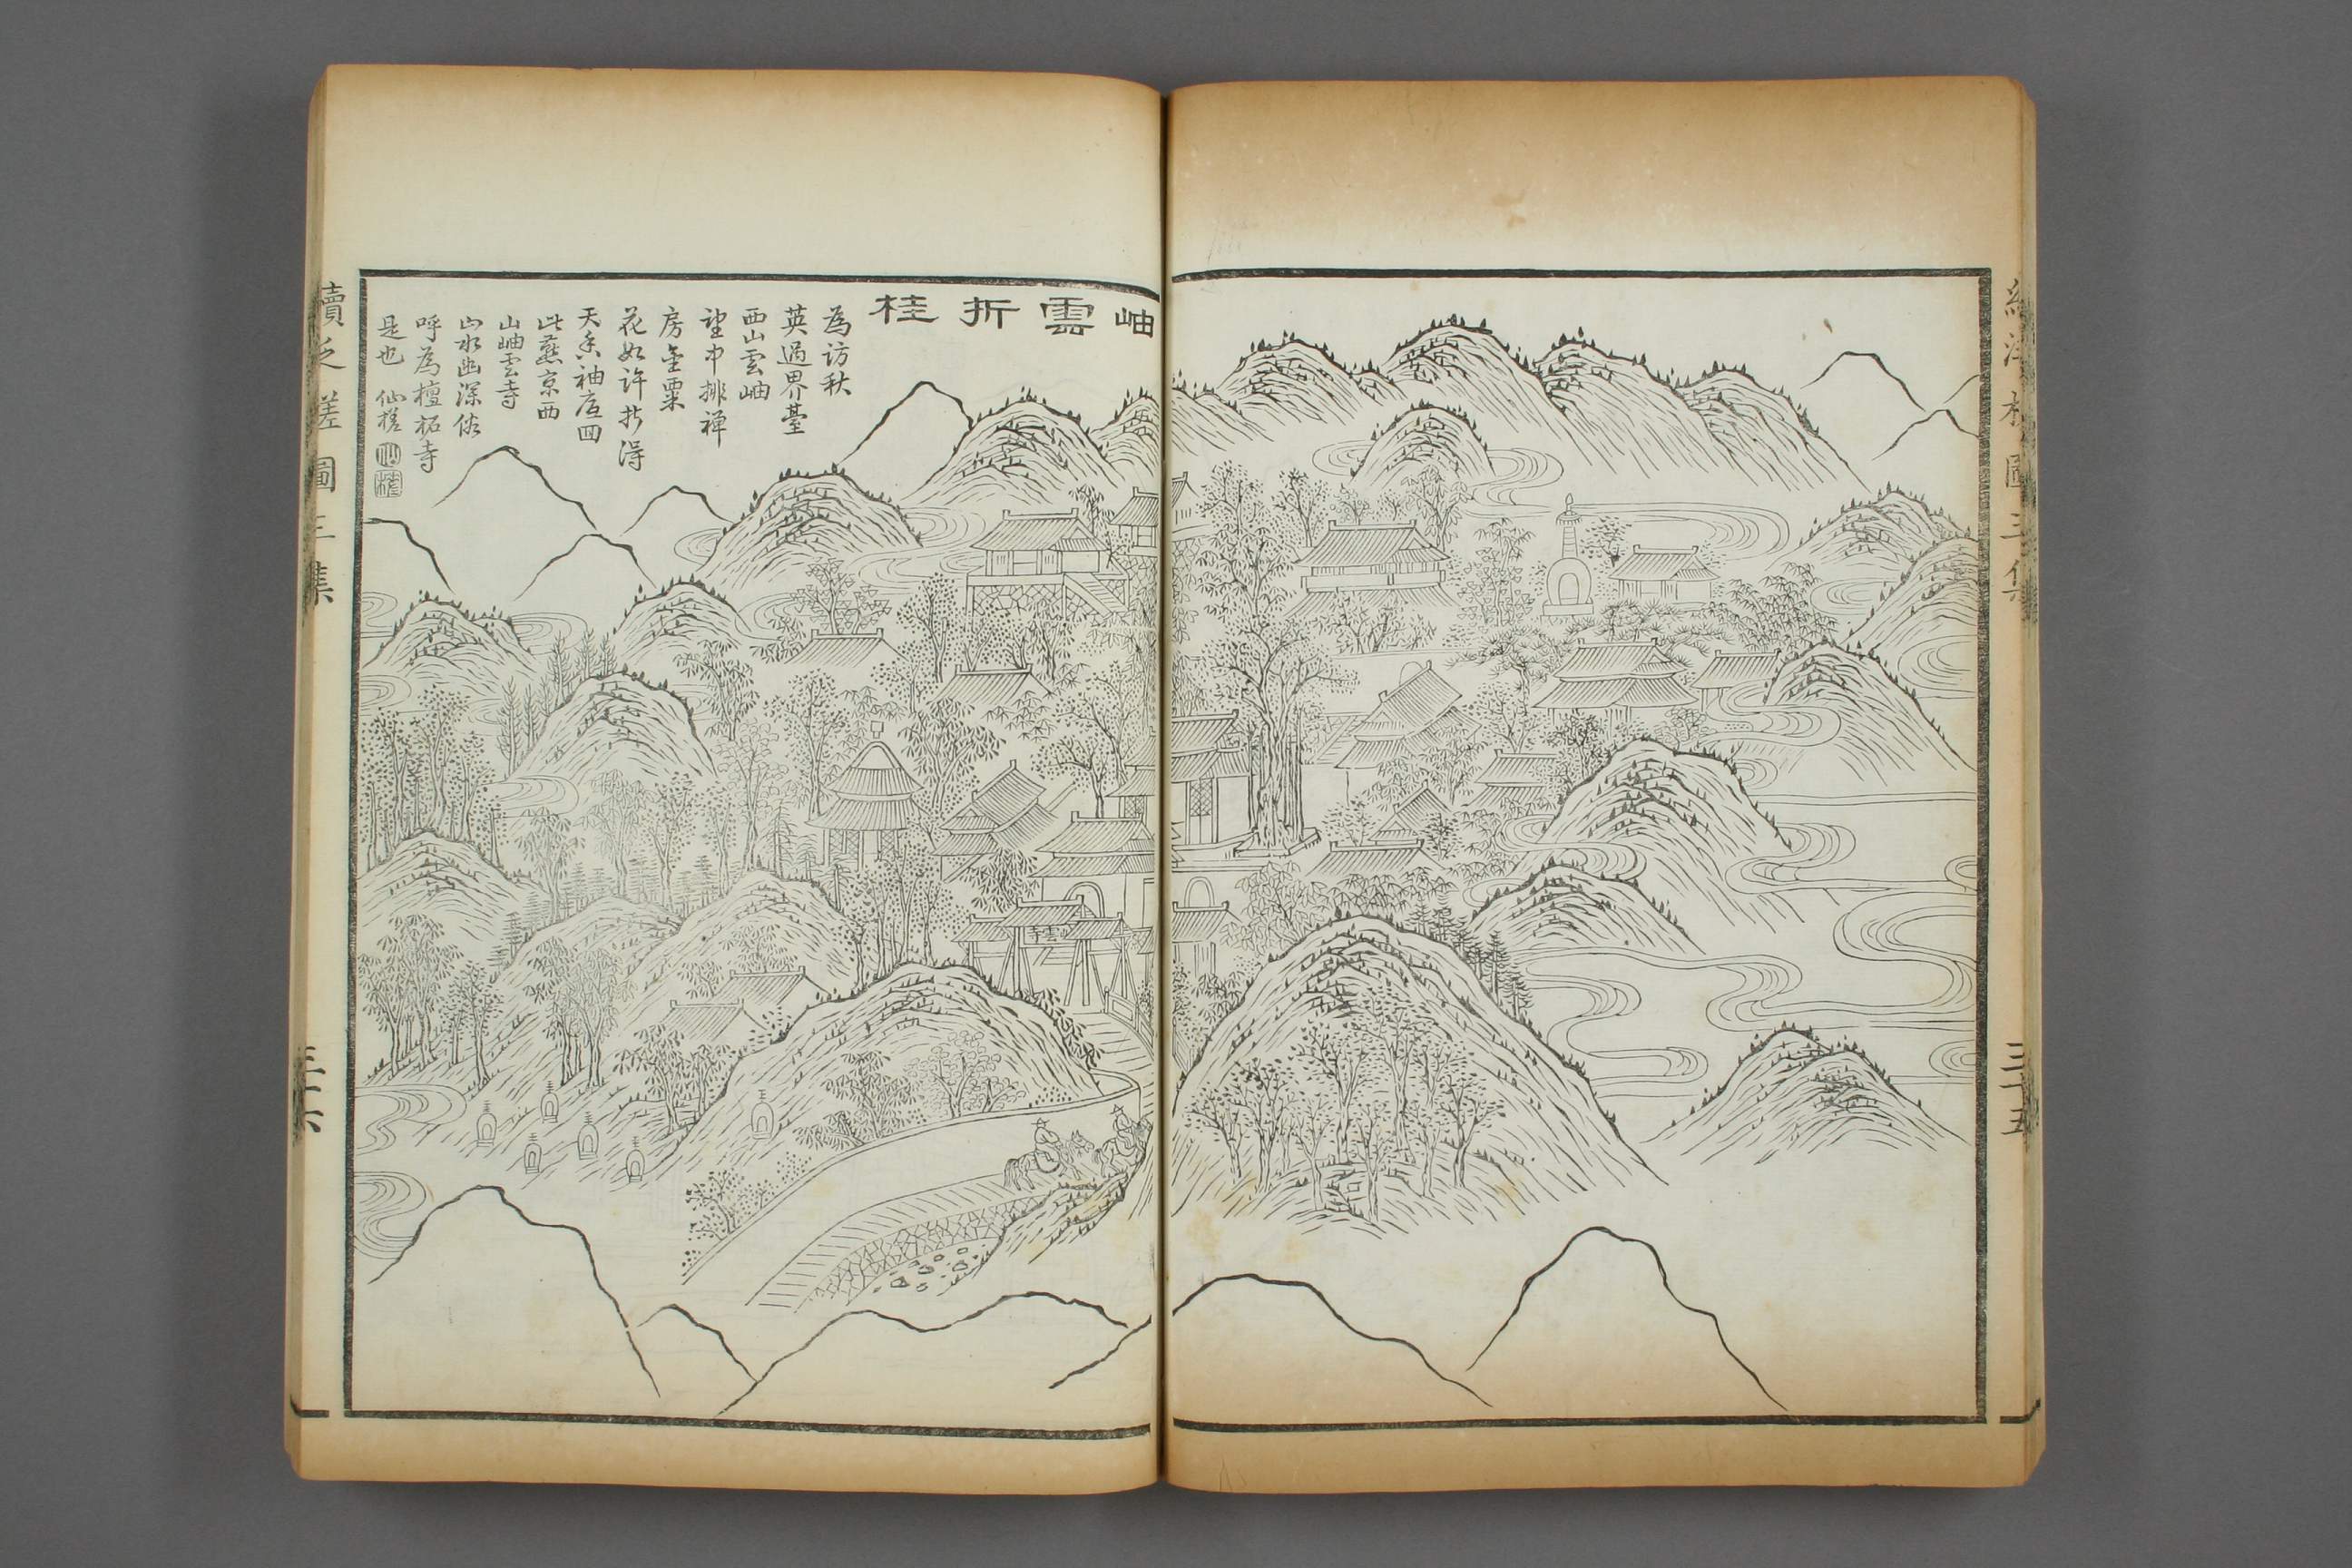 續泛槎圖三集
三十五
岫雲折桂
為访秋
英過界臺
西山雲岫
望中排禅
房金粟
花如許折得
天香袖底回
此燕京西
山岫雲寺
山水幽深俗
呼為檀柘寺
是也 仙槎
仙槎
雲寺
續泛槎圖三集
三十六